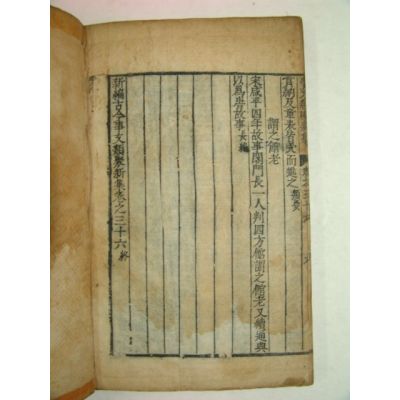 及章表皆受而進之
謂之館老
宋咸平四年故事閤門長一人判四方館謂之館老又續通典
以為唐故事長編
新編古今事文類聚新集卷之三十六終